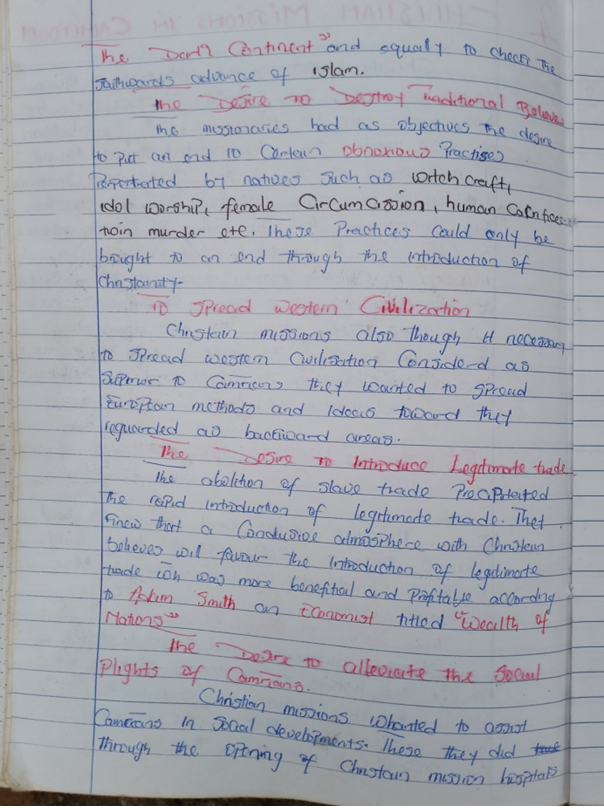 the Dark Continent" and equally to check the
Southwards advance of islam.
The Desire to Destroy Traditional Believes
The missionaries had as objectives the desire
to put an end to Certain obnoxious Practises
Perpetrated by natives such as witch craft,
idol worship, female Circumcission, human Sacrifices
twin murder etc. These Practices Could only be
bought to an end through the introduction of
Christainity.
To Spread western Civilization
Christain missions also though it necessary
to Spread western Civilisation Considerd as
Superior to Camerians they wanted to spread
European methods and ideas toward they
reguarded as backward areas.
The Desire to Introduce Legitimate trade
The abolition of slave trade Precipitated
the rapid introduction of legitimate trade. They
knew that a Condusive atmosphere with Christain
believes will favour the introduction of legitimate
trade wch was more benefitial and Profitable according
to Adam Smith an Economist titled "Wealth of
Nations"
The Desire to alleviate the Social
Plights of Camerians.
Christian missions whanted to assist
Camerians in Social developments. These they did
through the opening of Christain mission hospitals